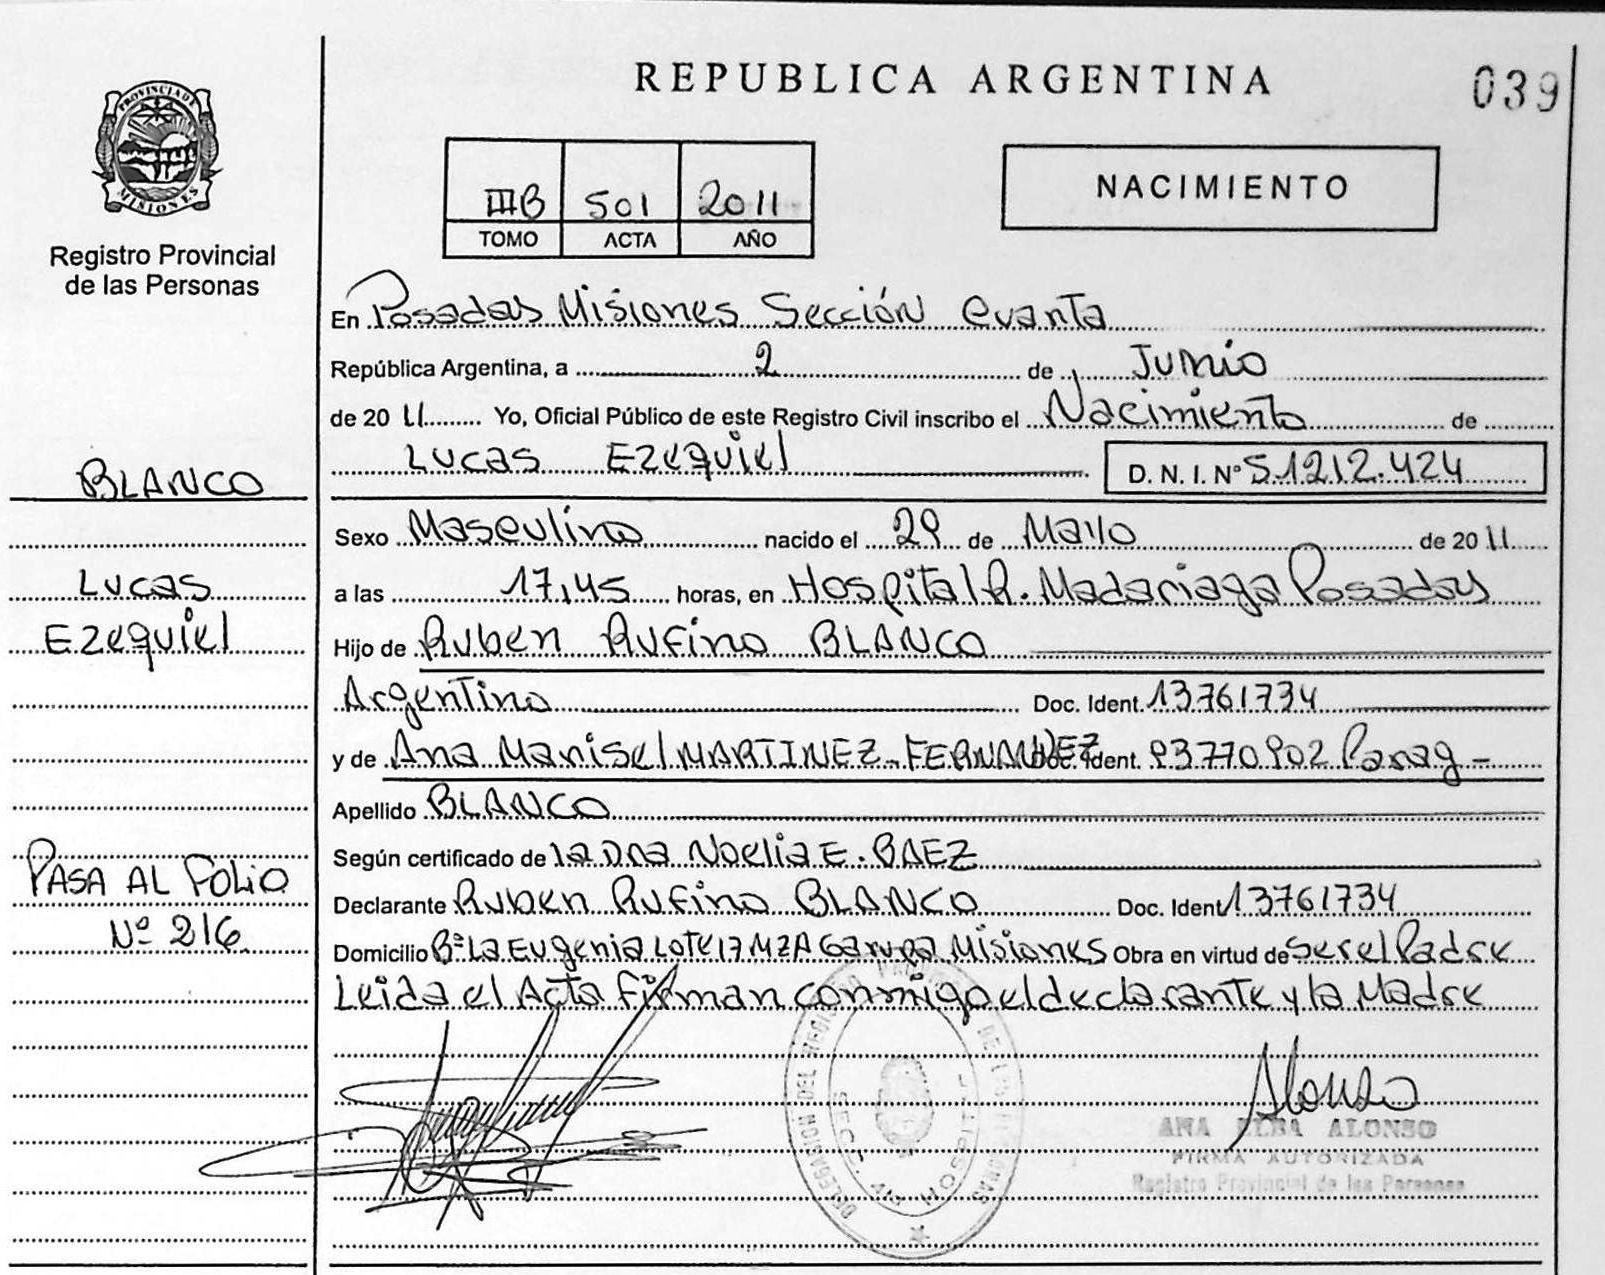 REPUBLICA ARGENTINA
039
PROVINCIA DE MISIONES
Registro Provincial
de las Personas
IIIB 501 2011
TOMO ACTA AÑO
NACIMIENTO
En Posadas Misiones Sección Cuarta
República Argentina, a 2 de Junio
de 2011 Yo, Oficial Público de este Registro Civil inscribo el Nacimiento de
Lucas Ezequiel D. N. I. Nº 51.212.424
BLANCO
Lucas
Ezequiel
Sexo Masculino nacido el 29 de Mayo de 2011
a las 17,45 horas, en Hospital R. Madariaga Posadas
Hijo de Ruben Rufino BLANCO
Argentino Doc. Ident. 13761734
y de Ana Marisel MARTINEZ-FERNANDEZ Doc. Ident. 93770902 Parag-
Apellido BLANCO
Según certificado de la Dra Noelia E. BAEZ
Declarante Ruben Rufino BLANCO Doc. Ident 13761734
Domicilio Bº La Eugenia Lote 17 MZA Garupa Misiones Obra en virtud de ser el Padre
Leida el Acta Firman conmigo el declarante y la Madre
PASA AL FOLIO
Nº 216
DELEGACION DEL REGISTRO PROVINCIAL DE LAS PERSONAS
Alonso
ANA ELBA ALONSO
FIRMA AUTORIZADA
Registro Provincial de las Personas